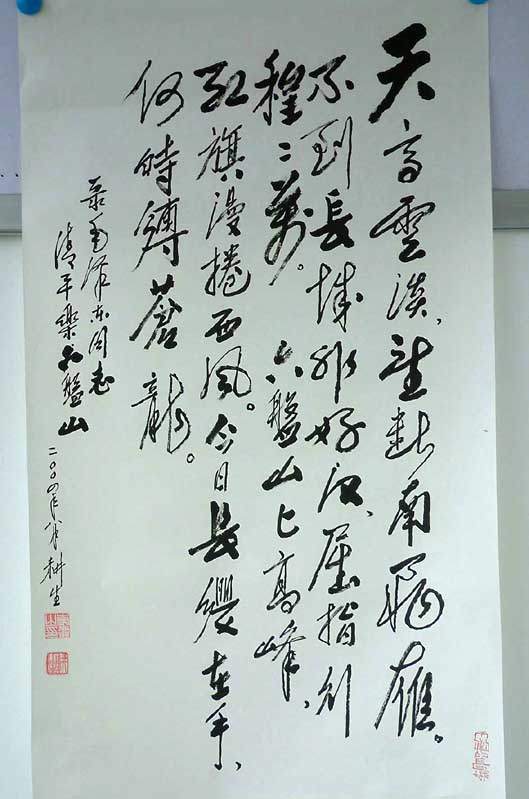 天高雲淡,望斷南飛雁。
不到長城非好汉,屈指行
程二萬。六盤山上高峰,
红旗漫捲西风。今日長纓在手,
何時縛蒼龍。
录毛泽东同志
清平樂六盤山
二〇〇四年 耕生